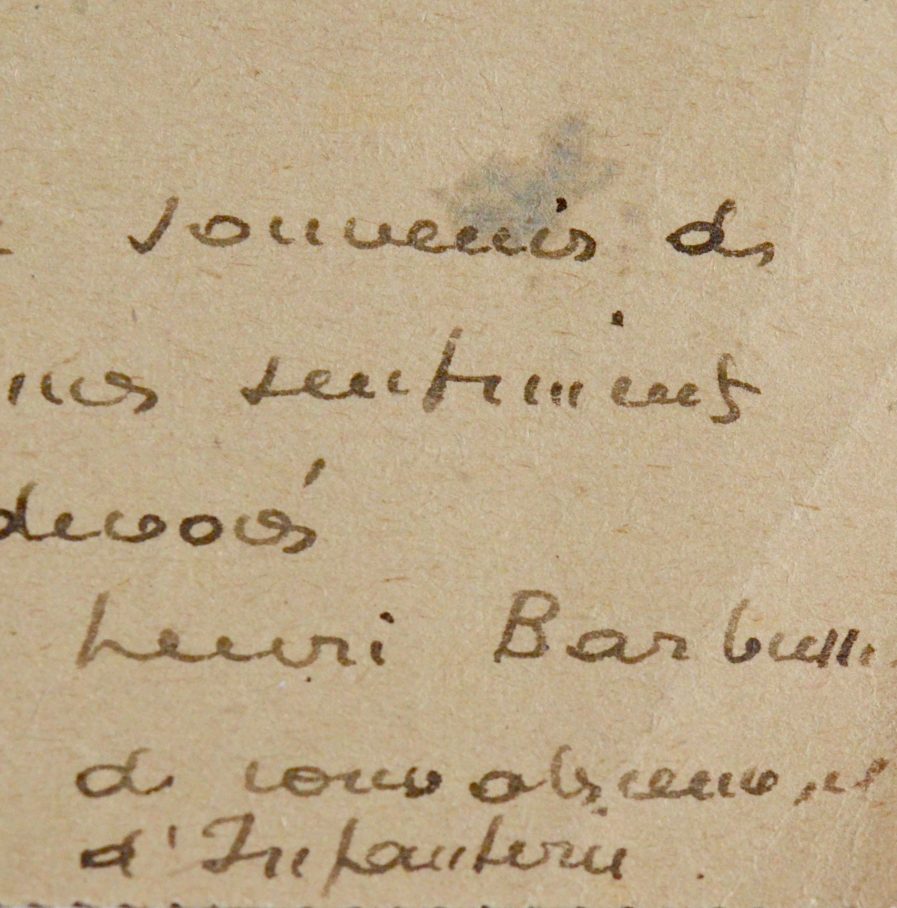 souvenir de
mes sentiments
dévoués
Henri Barbusse
de convalescence,
d'Infanterie